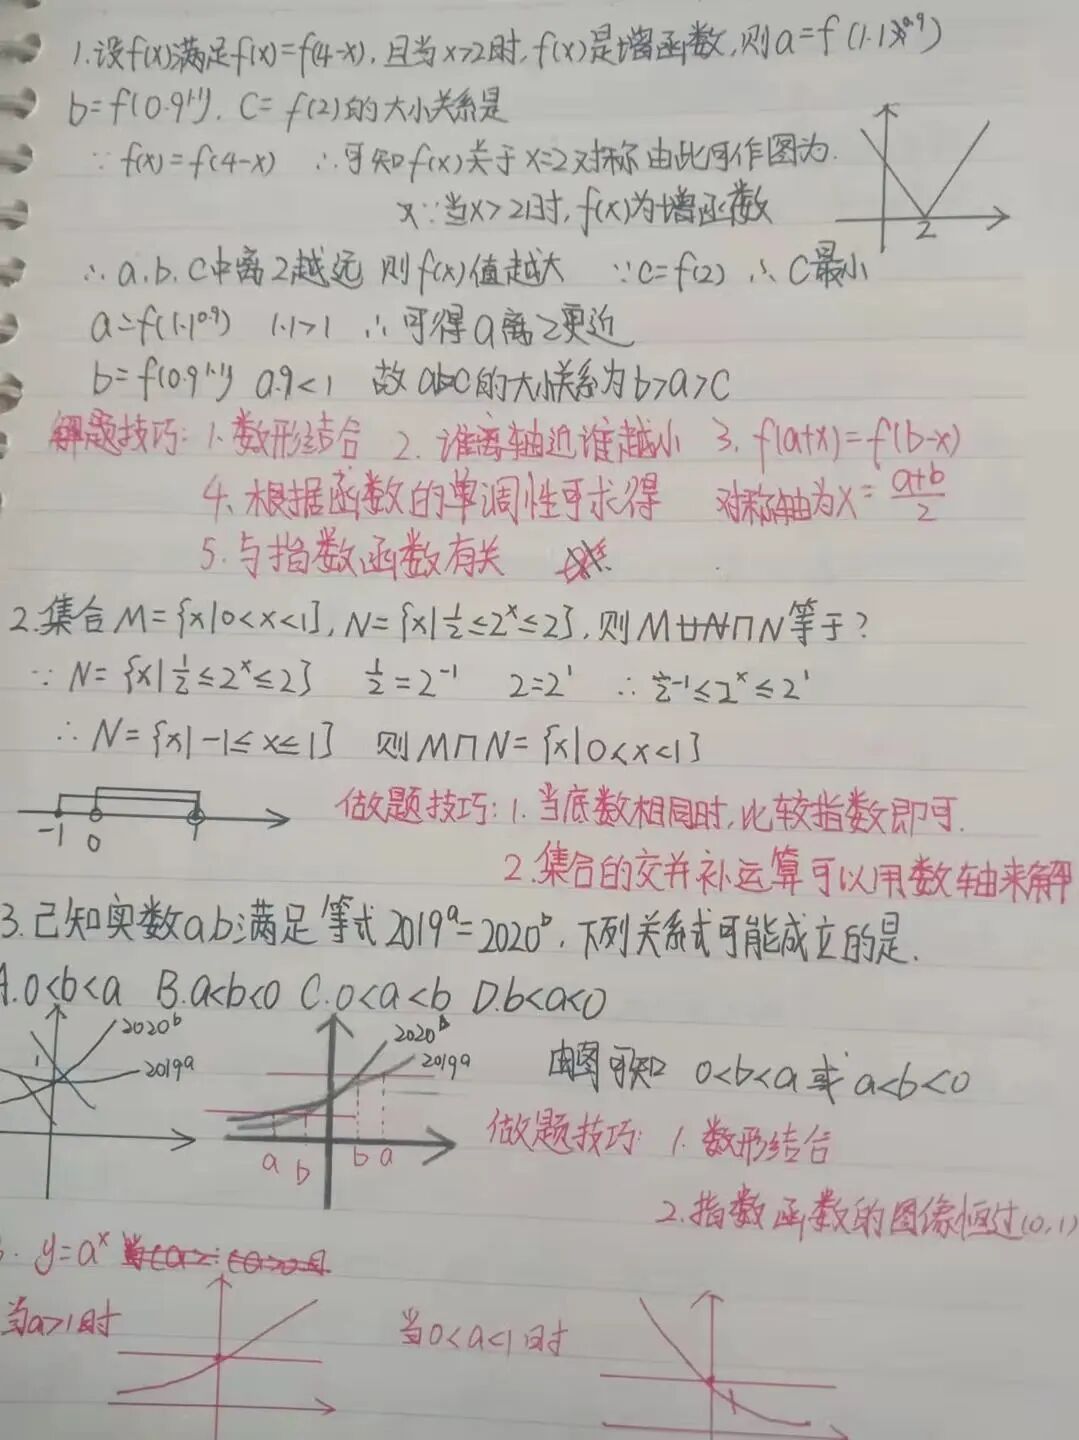 1.设f(x)满足f(x)=f(4-x),且当x>2时,f(x)是增函数,则a=f(1.1^0.9)
b=f(0.9^1.1),C=f(2)的大小关系是
∵f(x)=f(4-x) ∴可知f(x)关于x=2对称 由此可作图为.
∵当x>2时,f(x)为增函数
2
∴a.b.C中离2越远 则f(x)值越大 ∵C=f(2) ∴C最小
a=f(1.1^0.9) 1.1>1 ∴可得a离2更近
b=f(0.9^1.1) 0.9<1 故abc的大小关系为b>a>C
解题技巧:1.数形结合 2.谁离轴近谁越小 3.f(a+x)=f(b-x)
4、根据函数的单调性可求得 对称轴为x=(a+b)/2
5.与指数函数有关
2.集合M={x|0<x<1},N={x|1/2≤2^x≤2},则M∩N等于?
∵N={x|1/2≤2^x≤2} 1/2=2^-1 2=2^1 ∴2^-1≤2^x≤2^1
∴N={x|-1≤x≤1} 则M∩N={x|0<x<1}
-1 0 1
做题技巧:1.当底数相同时,比较指数即可.
2.集合的交并补运算可以用数轴来解
3.已知实数ab满足等式2019^a=2020^b,下列关系式可能成立的是.
A.0<b<a B.a<b<0 C.0<a<b D.b<a<0
1 2020^b 2019^a
2020^b 2019^a
a b b a
由图可知 0<b<a或a<b<0
做题技巧:1.数形结合
2.指数函数的图像恒过(0,1)
3.y=a^x
当a>1时
当0<a<1时
1